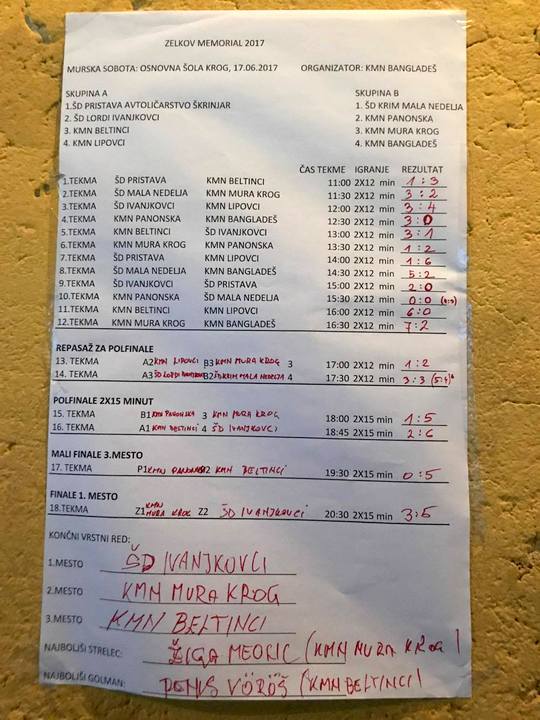 ZELKOV MEMORIAL 2017
MURSKA SOBOTA: OSNOVNA ŠOLA KROG, 17.06.2017 ORGANIZATOR: KMN BANGLADEŠ
SKUPINA A SKUPINA B
1.ŠD PRISTAVA AVTOLIČARSTVO ŠKRINJAR 1. ŠD KRIM MALA NEDELJA
2. ŠD LORDI IVANJKOVCI 2. KMN PANONSKA
3. KMN BELTINCI 3. KMN MURA KROG
4. KMN LIPOVCI 4. KMN BANGLADEŠ
ČAS TEKME IGRANJE REZULTAT
1.TEKMA ŠD PRISTAVA KMN BELTINCI 11:00 2X12 min 1:3
2.TEKMA ŠD MALA NEDELJA KMN MURA KROG 11:30 2X12 min 3:2
3.TEKMA ŠD IVANJKOVCI KMN LIPOVCI 12:00 2X12 min 3:4
4.TEKMA KMN PANONSKA KMN BANGLADEŠ 12:30 2X12 min 3:0
5.TEKMA KMN BELTINCI ŠD IVANJKOVCI 13:00 2X12 min 3:1
6.TEKMA KMN MURA KROG KMN PANONSKA 13:30 2X12 min 1:2
7.TEKMA ŠD PRISTAVA KMN LIPOVCI 14:00 2X12 min 1:6
8.TEKMA ŠD MALA NEDELJA KMN BANGLADEŠ 14:30 2X12 min 5:2
9.TEKMA ŠD IVANJKOVCI ŠD PRISTAVA 15:00 2X12 min 2:0
10.TEKMA KMN PANONSKA ŠD MALA NEDELJA 15:30 2X12 min 0:0
11.TEKMA KMN BELTINCI KMN LIPOVCI 16:00 2X12 min 6:0
12.TEKMA KMN MURA KROG KMN BANGLADEŠ 16:30 2X12 min 7:2
REPASAŽ ZA POLFINALE
13. TEKMA A2 KMN LIPOVCI B3 KMN MURA KROG 3 17:00 2X12 min 1:2
14. TEKMA A3 ŠD LORDI IVANJKOVCI B2 ŠD KRIM MALA NEDELJA 4 17:30 2X12 min 3:3 (5:4)
POLFINALE 2X15 MINUT
15. TEKMA B1 KMN PANONSKA 3 KMN MURA KROG 18:00 2X15 min 1:5
16. TEKMA A1 KMN BELTINCI 4 ŠD IVANJKOVCI 18:45 2X15 min 2:6
MALI FINALE 3.MESTO
17. TEKMA P1 KMN PANONSKA P2 KMN BELTINCI 19:30 2X15 min 0:5
FINALE 1. MESTO
18.TEKMA Z1 KMN MURA KROG Z2 ŠD IVANJKOVCI 20:30 2X15 min 3:5
KONČNI VRSTNI RED:
1.MESTO ŠD IVANJKOVCI
2.MESTO KMN MURA KROG
3.MESTO KMN BELTINCI
NAJBOLJŠI STRELEC: ŽIGA MEOLIC (KMN MURA KROG)
NAJBOLJŠI GOLMAN: DENIS VÖRÖŠ (KMN BELTINCI)